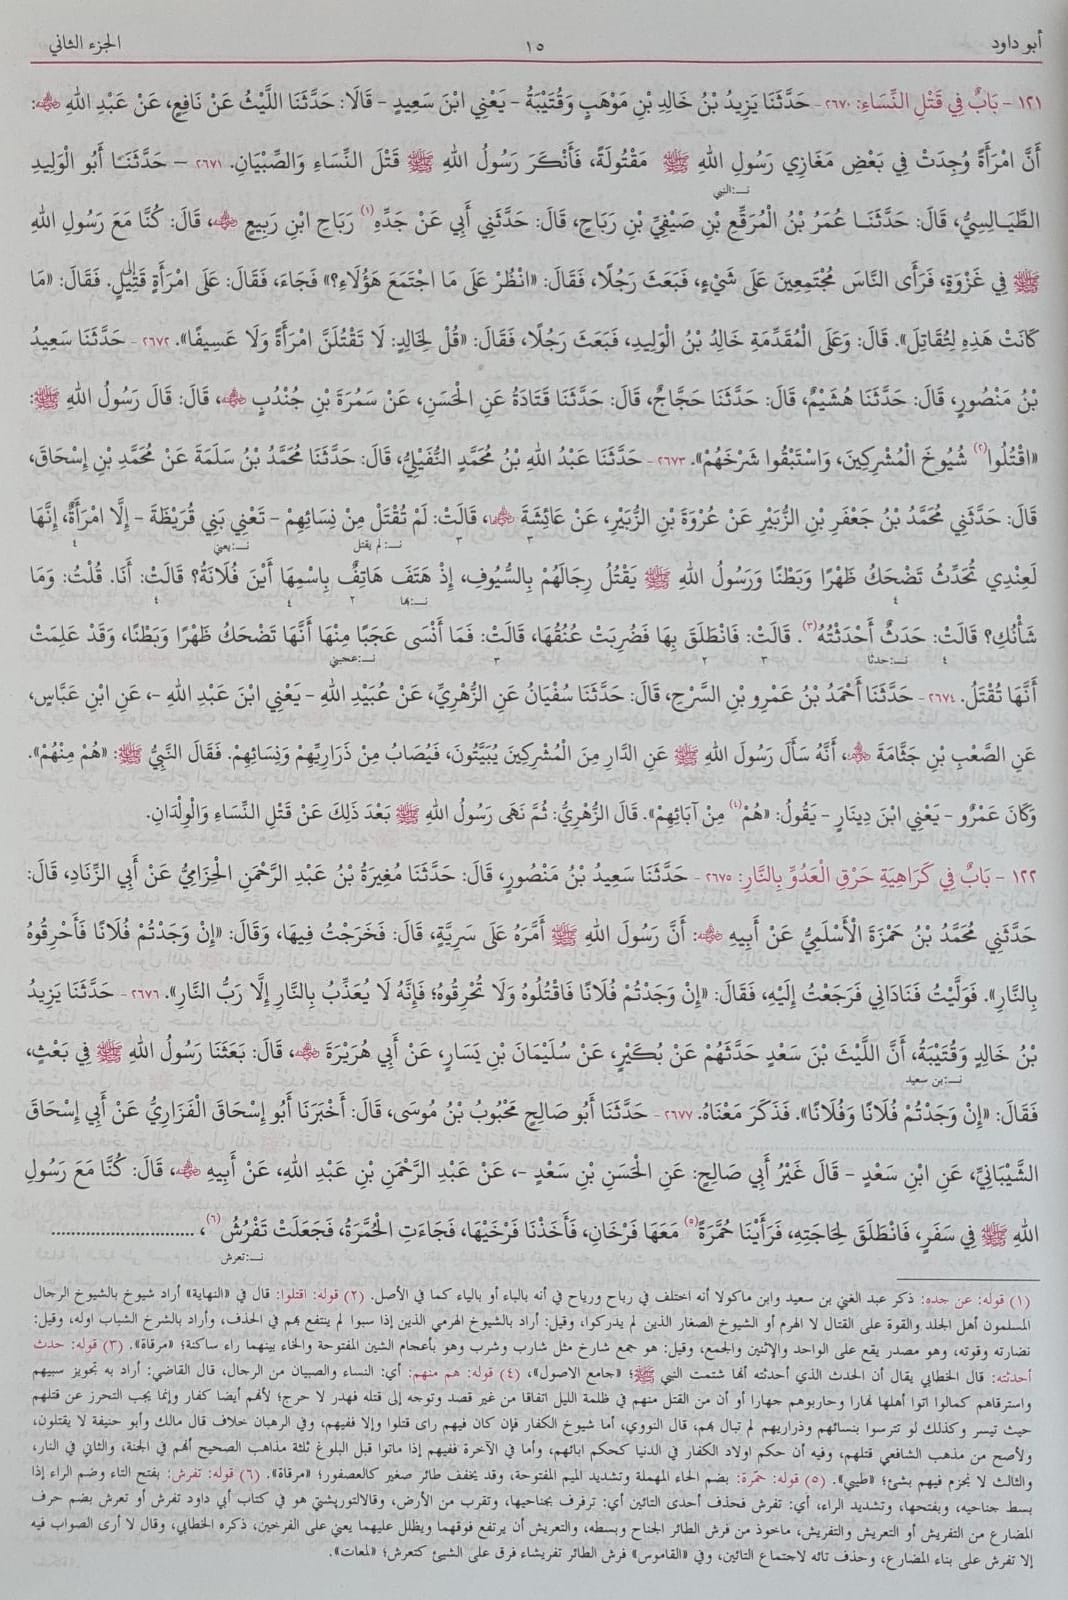 أبو داود ١٥ الجزء الثاني
١٢١ - بَابٌ فِي قَتْلِ النِّسَاءِ: ٢٦٧٠- حَدَّثَنَا يَزِيدُ بْنُ خَالِدِ بْنِ مَوْهَبٍ وَقُتَيْبَةُ - يَعْنِي ابْنَ سَعِيدٍ - قَالَا: حَدَّثَنَا اللَّيْثُ عَنْ نَافِعٍ، عَنْ عَبْدِ اللهِ ﷺ:
أَنَّ امْرَأَةً وُجِدَتْ فِي بَعْضِ مَغَازِي رَسُولِ اللهِ ﷺ مَقْتُولَةً، فَأَنْكَرَ رَسُولُ اللهِ ﷺ قَتْلَ النِّسَاءِ وَالصِّبْيَانِ. ٢٦٧١ - حَدَّثَنَا أَبُو الْوَلِيدِ
نـ: النبي
الطَّيَالِسِيُّ، قَالَ: حَدَّثَنَا عُمَرُ بْنُ الْمُرَقَّعِ بْنِ صَيْفِيِّ بْنِ رَبَاحٍ، قَالَ: حَدَّثَنِي أَبِي عَنْ جَدِّهِ (١) رَبَاحِ ابْنِ رَبِيعٍ، قَالَ: كُنَّا مَعَ رَسُولِ اللهِ
ﷺ فِي غَزْوَةٍ، فَرَأَى النَّاسَ مُجْتَمِعِينَ عَلَى شَيْءٍ، فَبَعَثَ رَجُلًا، فَقَالَ: «انْظُرْ عَلَى مَا اجْتَمَعَ هَؤُلَاءِ؟» فَجَاءَ، فَقَالَ: عَلَى امْرَأَةٍ قَتِيلٍ. فَقَالَ: «مَا
كَانَتْ هَذِهِ لِتُقَاتِلَ». قَالَ: وَعَلَى الْمُقَدِّمَةِ خَالِدُ بْنُ الْوَلِيدِ، فَبَعَثَ رَجُلًا، فَقَالَ: «قُلْ لِخَالِدٍ: لَا تَقْتُلَنَّ امْرَأَةً وَلَا عَسِيفًا». ٢٦٧٢- حَدَّثَنَا سَعِيدُ
بْنُ مَنْصُورٍ، قَالَ: حَدَّثَنَا هُشَيْمٌ، قَالَ: حَدَّثَنَا حَجَّاجٌ، قَالَ: حَدَّثَنَا قَتَادَةُ عَنِ الْحَسَنِ، عَنْ سَمُرَةَ بْنِ جُنْدُبٍ، قَالَ: قَالَ رَسُولُ اللهِ ﷺ:
«اقْتُلُوا (٢) شُيُوخَ الْمُشْرِكِينَ، وَاسْتَبْقُوا شَرْخَهُمْ». ٢٦٧٣- حَدَّثَنَا عَبْدُ اللهِ بْنُ مُحَمَّدٍ النُّفَيْلِيُّ، قَالَ: حَدَّثَنَا مُحَمَّدُ بْنُ سَلَمَةَ عَنْ مُحَمَّدِ بْنِ إِسْحَاقَ،
قَالَ: حَدَّثَنِي مُحَمَّدُ بْنُ جَعْفَرِ بْنِ الزُّبَيْرِ عَنْ عُرْوَةَ بْنِ الزُّبَيْرِ، عَنْ عَائِشَةَ، قَالَتْ: لَمْ تُقْتَلْ مِنْ نِسَائِهِمْ - تَعْنِي بَنِي قُرَيْظَةَ - إِلَّا امْرَأَةٌ، إِنَّهَا
٣ ٣ نـ: لم يقتل نـ: يعني ٤
لَعِنْدِي تُحَدِّثُ تَضْحَكُ ظَهْرًا وَبَطْنًا وَرَسُولُ اللهِ ﷺ يَقْتُلُ رِجَالَهُمْ بِالسُّيُوفِ، إِذْ هَتَفَ هَاتِفٌ بِاسْمِهَا أَيْنَ فُلَانَةُ؟ قَالَتْ: أَنَا. قُلْتُ: وَمَا
٤ نـ: بها ٢ ٤ ٤
شَأْنُكِ؟ قَالَتْ: حَدَثٌ أَحْدَثْتُهُ (٣). قَالَتْ: فَانْطَلَقَ بِهَا فَضُرِبَتْ عُنُقُهَا، قَالَتْ: فَمَا أَنْسَى عَجَبًا مِنْهَا أَنَّهَا تَضْحَكُ ظَهْرًا وَبَطْنًا، وَقَدْ عَلِمَتْ
٤ نـ: حدثا ٣ ٢ ٣ نـ: عجبني
أَنَّهَا تُقْتَلُ. ٢٦٧٤- حَدَّثَنَا أَحْمَدُ بْنُ عَمْرِو بْنِ السَّرْحِ، قَالَ: حَدَّثَنَا سُفْيَانُ عَنِ الزُّهْرِيِّ، عَنْ عُبَيْدِ اللهِ - يَعْنِي ابْنَ عَبْدِ اللهِ -، عَنِ ابْنِ عَبَّاسٍ،
عَنِ الصَّعْبِ بْنِ جَثَّامَةَ، أَنَّهُ سَأَلَ رَسُولَ اللهِ ﷺ عَنِ الدَّارِ مِنَ الْمُشْرِكِينَ يُبَيَّتُونَ، فَيُصَابُ مِنْ ذَرَارِيِّهِمْ وَنِسَائِهِمْ. فَقَالَ النَّبِيُّ ﷺ: «هُمْ مِنْهُمْ».
وَكَانَ عَمْرٌو - يَعْنِي ابْنَ دِينَارٍ - يَقُولُ: «هُمْ (٤) مِنْ آبَائِهِمْ». قَالَ الزُّهْرِيُّ: ثُمَّ نَهَى رَسُولُ اللهِ ﷺ بَعْدَ ذَلِكَ عَنْ قَتْلِ النِّسَاءِ وَالْوِلْدَانِ.
١٢٢ - بَابٌ فِي كَرَاهِيَةِ حَرْقِ الْعَدُوِّ بِالنَّارِ: ٢٦٧٥- حَدَّثَنَا سَعِيدُ بْنُ مَنْصُورٍ، قَالَ: حَدَّثَنَا مُغِيرَةُ بْنُ عَبْدِ الرَّحْمَنِ الْحِزَامِيُّ عَنْ أَبِي الزِّنَادِ، قَالَ:
حَدَّثَنِي مُحَمَّدُ بْنُ حَمْزَةَ الْأَسْلَمِيُّ عَنْ أَبِيهِ: أَنَّ رَسُولَ اللهِ ﷺ أَمَّرَهُ عَلَى سَرِيَّةٍ، قَالَ: فَخَرَجْتُ فِيهَا، وَقَالَ: «إِنْ وَجَدْتُمْ فُلَانًا فَأَحْرِقُوهُ
بِالنَّارِ». فَوَلَّيْتُ فَنَادَانِي فَرَجَعْتُ إِلَيْهِ، فَقَالَ: «إِنْ وَجَدْتُمْ فُلَانًا فَاقْتُلُوهُ وَلَا تُحْرِقُوهُ؛ فَإِنَّهُ لَا يُعَذِّبُ بِالنَّارِ إِلَّا رَبُّ النَّارِ». ٢٦٧٦- حَدَّثَنَا يَزِيدُ
بْنُ خَالِدٍ وَقُتَيْبَةُ، أَنَّ اللَّيْثَ بْنَ سَعْدٍ حَدَّثَهُمْ عَنْ بُكَيْرٍ، عَنْ سُلَيْمَانَ بْنِ يَسَارٍ، عَنْ أَبِي هُرَيْرَةَ، قَالَ: بَعَثَنَا رَسُولُ اللهِ ﷺ فِي بَعْثٍ،
نـ: بن سعيد
فَقَالَ: «إِنْ وَجَدْتُمْ فُلَانًا وَفُلَانًا». فَذَكَرَ مَعْنَاهُ. ٢٦٧٧- حَدَّثَنَا أَبُو صَالِحٍ مَحْبُوبُ بْنُ مُوسَى، قَالَ: أَخْبَرَنَا أَبُو إِسْحَاقَ الْفَزَارِيُّ عَنْ أَبِي إِسْحَاقَ
الشَّيْبَانِيِّ، عَنِ ابْنِ سَعْدٍ - قَالَ غَيْرُ أَبِي صَالِحٍ: عَنِ الْحَسَنِ بْنِ سَعْدٍ -، عَنْ عَبْدِ الرَّحْمَنِ بْنِ عَبْدِ اللهِ، عَنْ أَبِيهِ، قَالَ: كُنَّا مَعَ رَسُولِ
اللهِ ﷺ فِي سَفَرٍ، فَانْطَلَقَ لِحَاجَتِهِ، فَرَأَيْنَا حُمَّرَةً (٥) مَعَهَا فَرْخَانِ، فَأَخَذْنَا فَرْخَيْهَا، فَجَاءَتِ الْحُمَّرَةُ، فَجَعَلَتْ تَفْرُشُ (٦)، ..............................
نـ: تعرش
(١) قوله: عن جده: ذكر عبد الغني بن سعيد وابن ماكولا أنه اختلف في رباح ورياح في أنه بالباء أو بالياء كما في الأصل. (٢) قوله: اقتلوا: قال في «النهاية» أراد شيوخ بالشيوخ الرجال
المسلمون أهل الجلد والقوة على القتال لا الهرم أو الشيوخ الصغار الذين لم يدركوا، وقيل: أراد بالشيوخ الهرمي الذين إذا سبوا لم ينتفع بهم في الحذف، وأراد بالشرخ الشباب اوله، وقيل:
نضارته وقوته، وهو مصدر يقع على الواحد والإثنين والجمع، وقيل: هو جمع شارخ مثل شارب وشرب وهو بأعجام الشين المفتوحة والخاء بينهما راء ساكنة؛ «مرقاة». (٣) قوله: حدث
أحدثته: قال الخطابي يقال أن الحدث الذي أحدثته أنها شتمت النبي ﷺ؛ «جامع الاصول»، (٤) قوله: هم منهم: أي: النساء والصبيان من الرجال، قال القاضي: أراد به تجويز سبيهم
واسترقاهم كمالوا اتوا أهلها نهارا وحاربوهم جهارا أو أن من القتل منهم في ظلمة الليل اتفاقا من غير قصد وتوجه إلى قتله فهدر لا حرج؛ لأنهم أيضا كفار وإنما يجب التحرز عن قتلهم
حيث تيسر وكذلك لو تترسوا بنسائهم وذراريهم لم تبال بهم، قال النووي، أما شيوخ الكفار فإن كان فيهم راى قتلوا وإلا ففيهم، وفي الرهبان خلاف قال مالك وأبو حنيفة لا يقتلون،
ولأصح من مذهب الشافعي قتلهم، وفيه أن حكم اولاد الكفار في الدنيا كحكم ابائهم، وأما في الآخرة ففيهم إذا ماتوا قبل البلوغ ثلثة مذاهب الصحيح أنهم في الجنة، والثاني في النار،
والثالث لا نجزم فيهم بشئ؛ «طيبي». (٥) قوله: حمّرة: بضم الحاء المهملة وتشديد الميم المفتوحة، وقد يخفف طائر صغير كالعصفور؛ «مرقاة». (٦) قوله: تفرش: بفتح التاء وضم الراء إذا
بسط جناحيه، وبفتحها، وتشديد الراء، أي: تفرش فحذف أحدى التائين أي: ترفرف بجناحيها، وتقرب من الأرض، وقالالتوربشتي هو في كتاب أبي داود تفرش أو تعرش بضم حرف
المضارع من التفريش أو التعريش والتفريش، ماخوذ من فرش الطائر الجناح وبسطه، والتعريش أن يرتفع فوقهما ويظلل عليهما يعني على الفرخين، ذكره الخطابي، وقال لا أرى الصواب فيه
إلا تفرش على بناء المضارع، وحذف تائه لاجتماع التائين، وفي «القاموس» فرش الطائر تفريشاء فرق على الشيئ كتعرش؛ «لمعات».